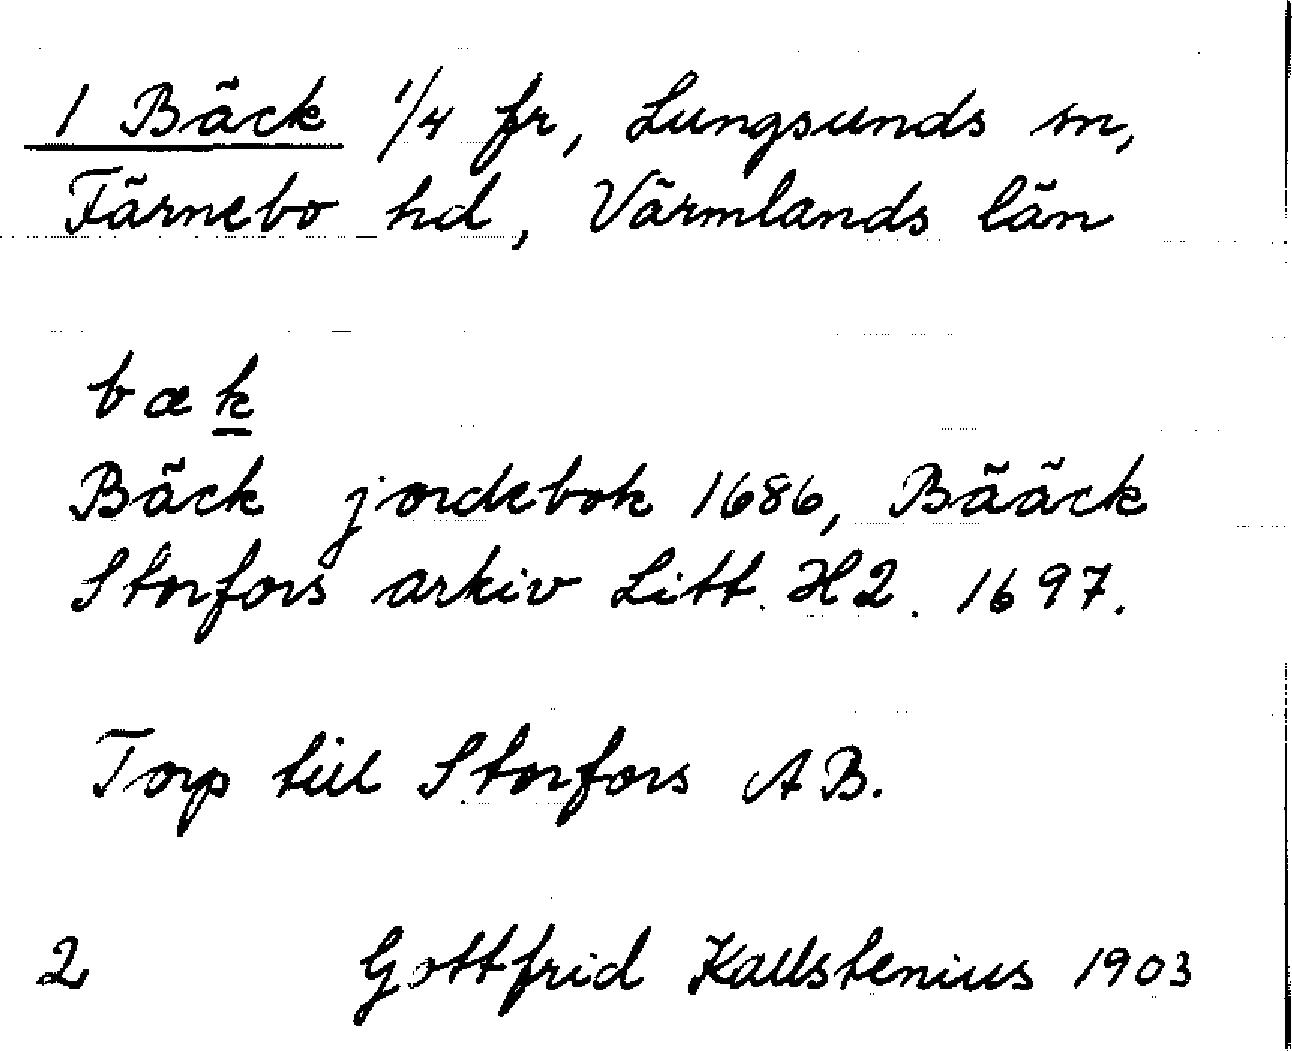 1 Bäck 1/4 fr, Lungsunds sn,
Färnebo hd, Värmlands län
bæk
Bäck jordebok 1686, Bääck
Storfors arkiv Litt. H2. 1697.
Torp till Storfors AB.
2 Gottfrid Kallstenius 1903